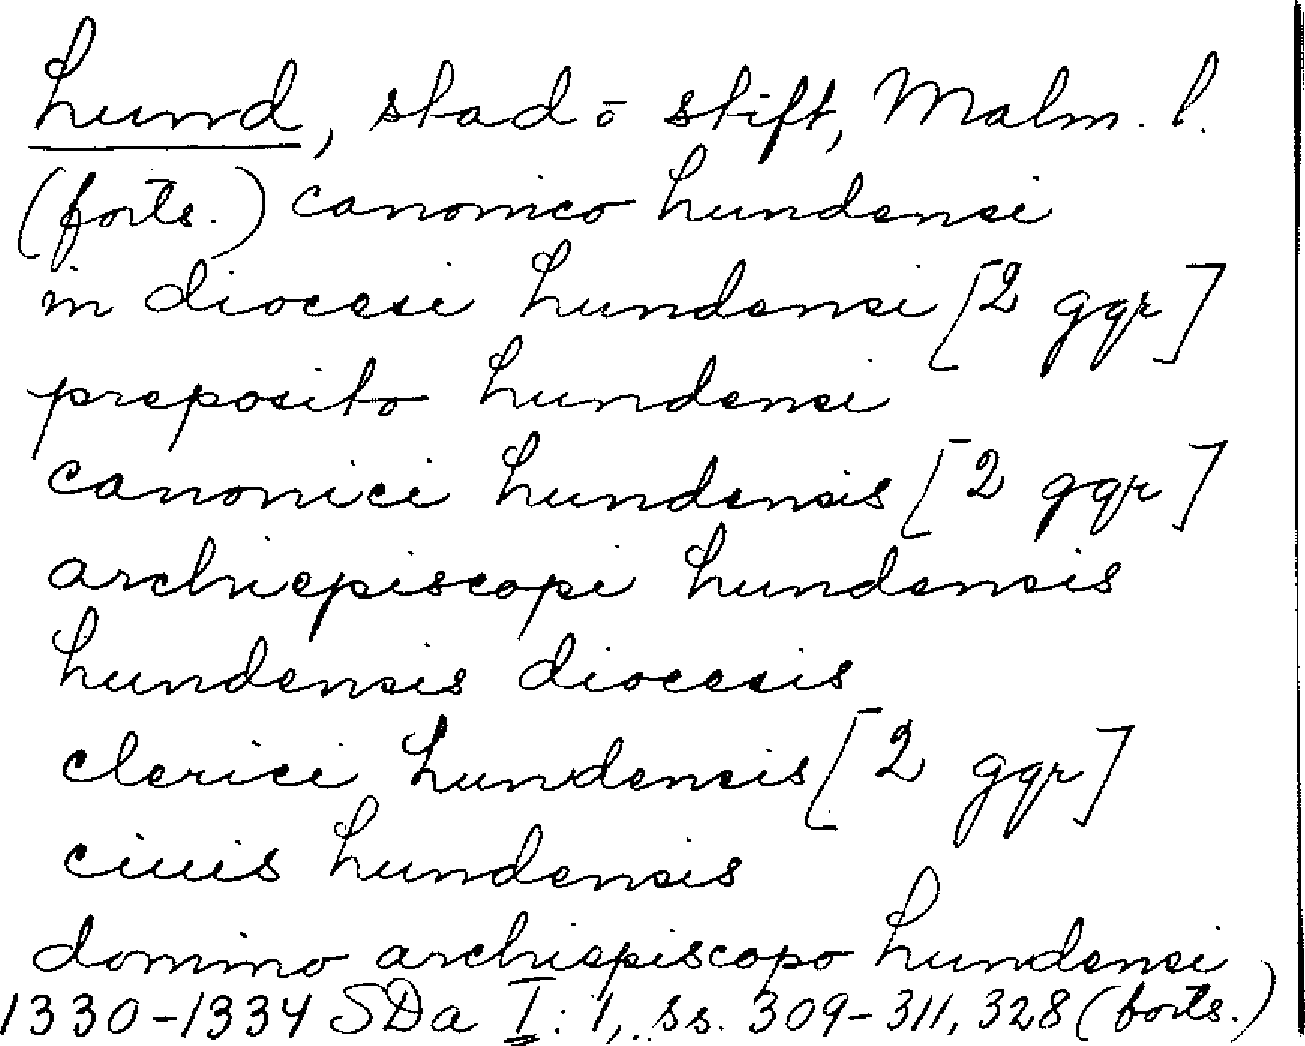 Lund, stad o stift, Malm. l.
(forts.) canonico Lundensi
in diocesi Lundensi [2 ggr]
preposito Lundensi
canonici Lundensis [2 ggr]
archiepiscopi Lundensis
Lundensis diocesis
clerici Lundensis [2 ggr]
ciuis Lundensis
domino archiepiscopo Lundensi
1330-1334 SDa I:1, ss. 309-311, 328 (forts.)